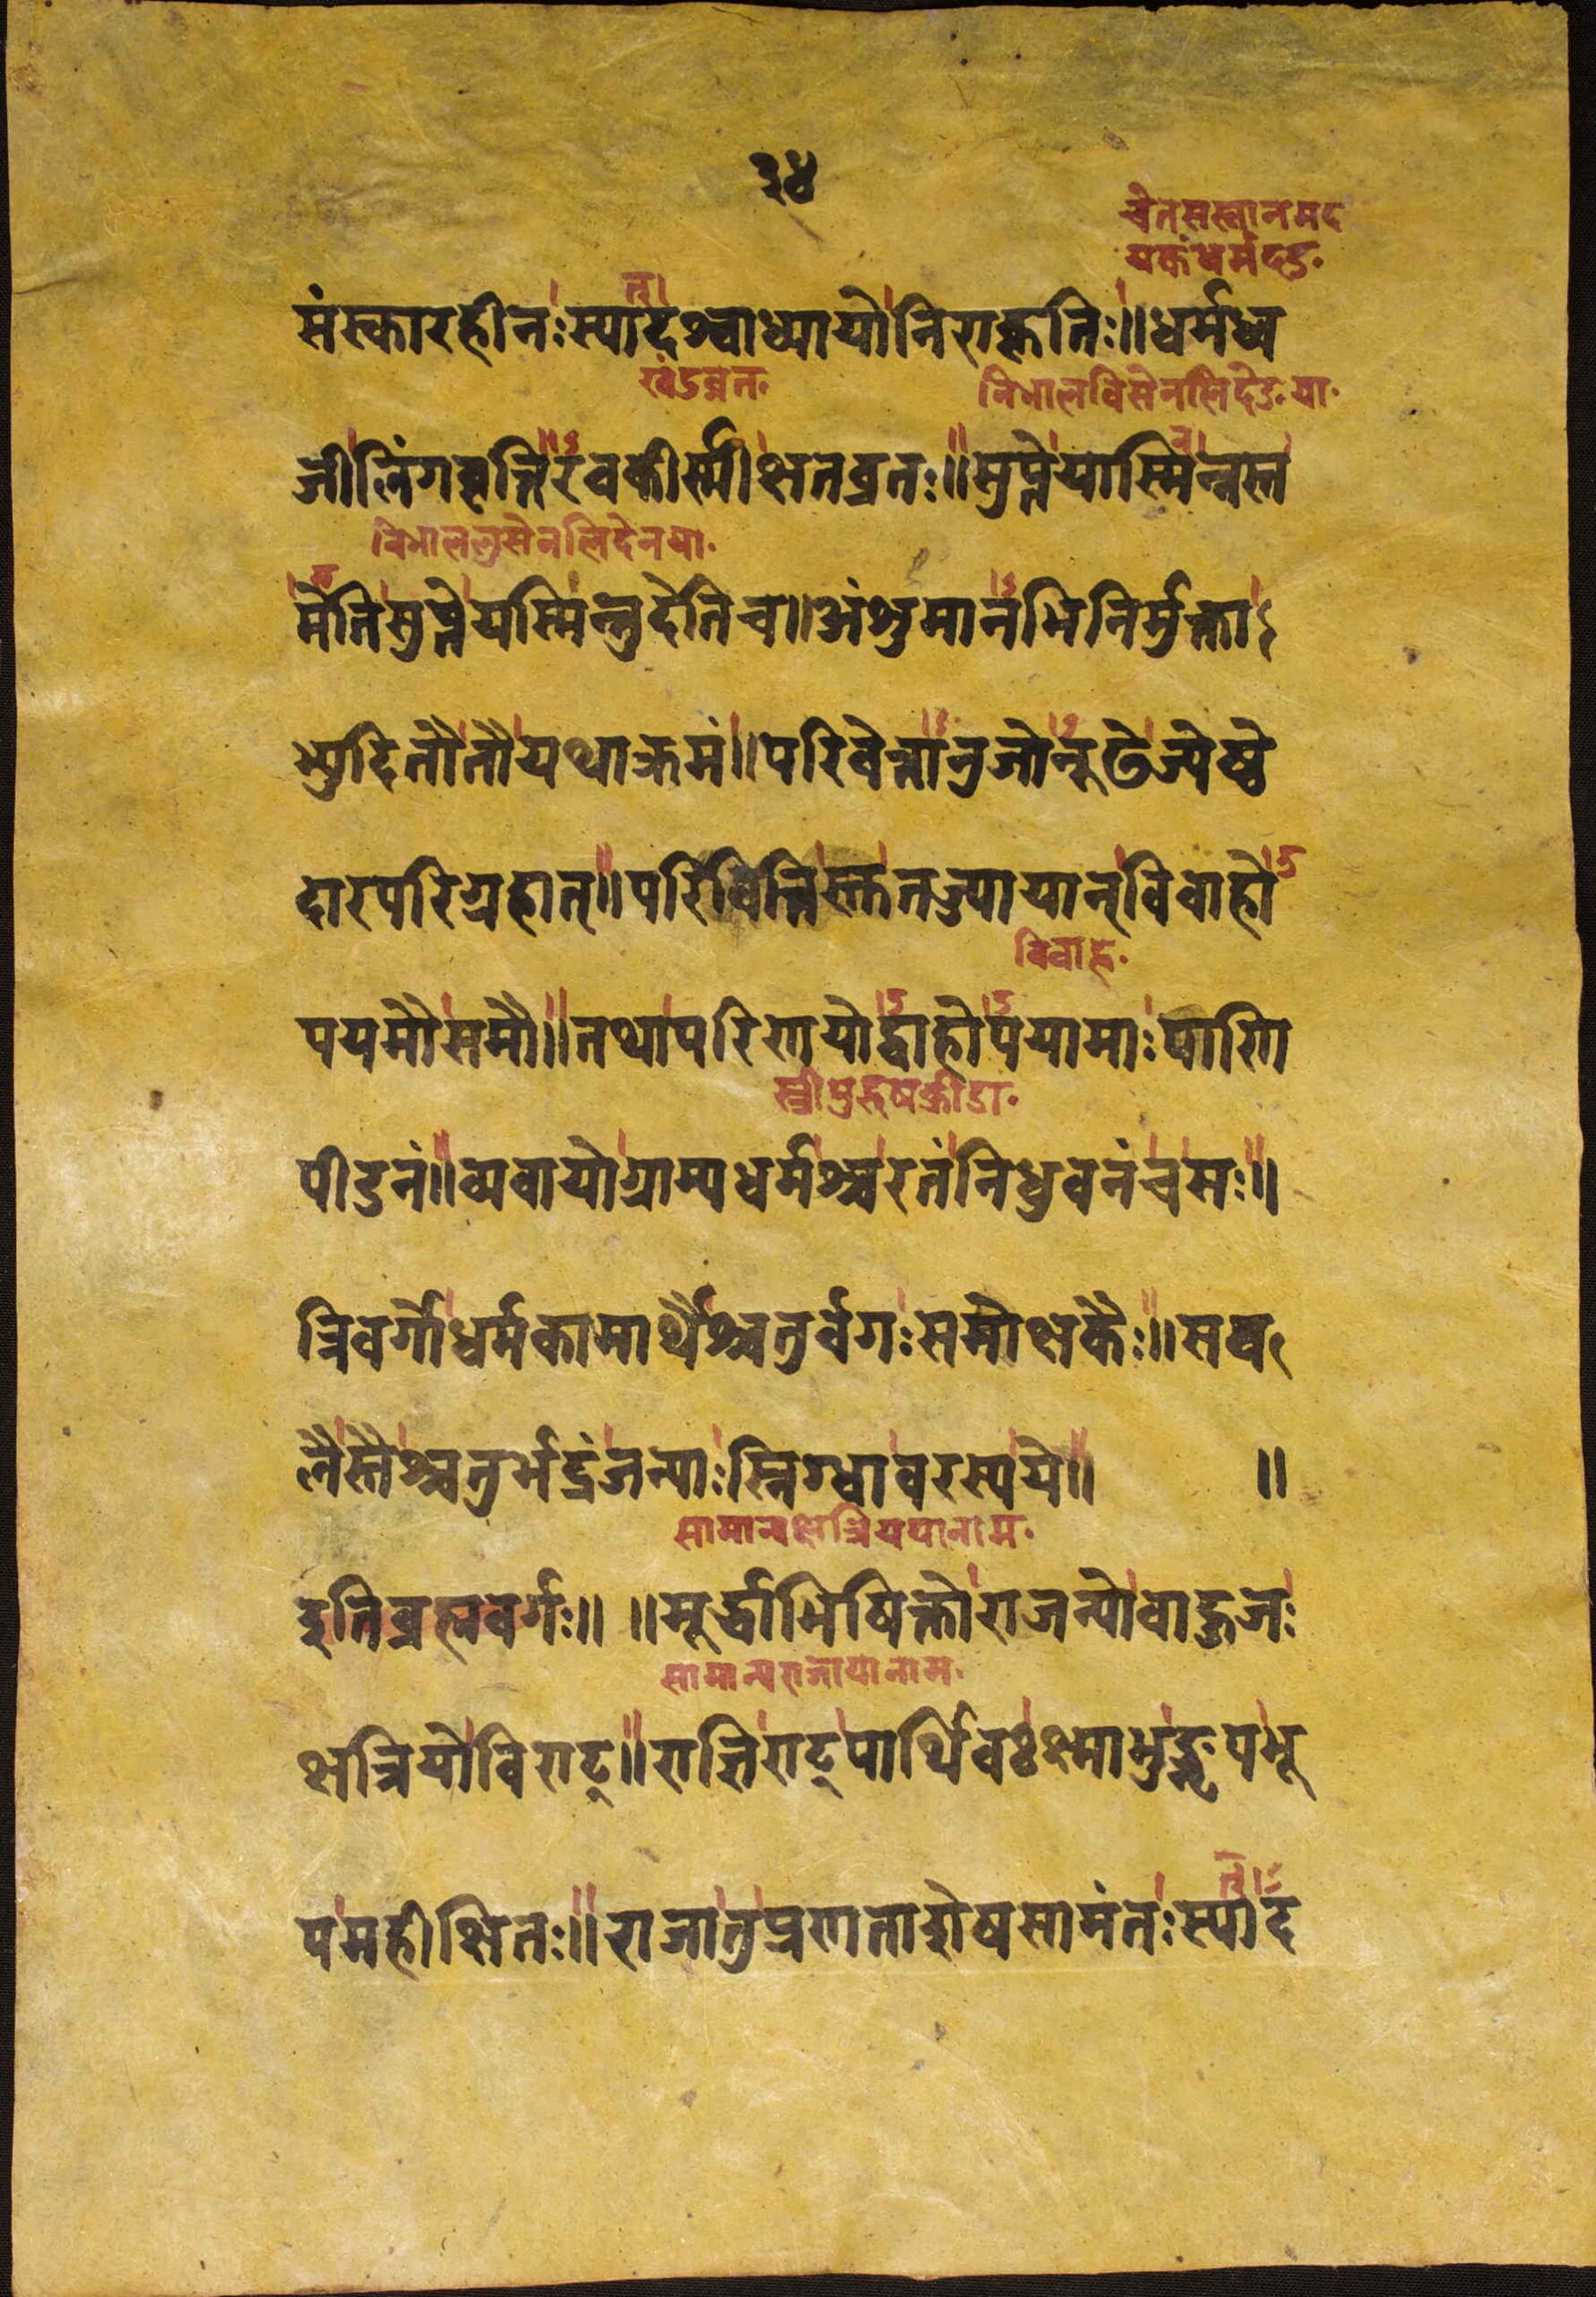 ३४
संस्कारहीनःस्यादश्वाध्यायोनिराकृतिः॥धर्मध्व
खंडव्रत.
जीलिंगवृत्तिरवकीर्स्मीक्षतव्रतः॥सुप्तेयास्मिन्नस्त
मेतिसुप्तेयस्मिन्नुदेतिच॥अंशुमानभिनिर्मुक्ता
भ्युदितौतौयथाक्रमं॥परिवेत्तानुजोनूढेज्येष्ठे
दारपरिग्रहात्॥परिवित्तिस्तुतज्यायान्विवाहो
विवाह.
पयमौसमौ॥तथापरिणयोद्वाहोपयामाःपाणि
स्त्रीपुरुषक्रीडा.
पीडनं॥व्यवायोग्राम्यधर्मश्चरतंनिधुवनंचसः॥
त्रिवर्गोधर्मकामार्थैश्चतुर्वगःसमोक्षकैः॥सब
लैस्तैश्चतुर्भद्रंजन्याःस्निग्धावरस्यये॥ ॥
सामान्यक्षत्रिययानाम.
इतिब्रह्मवर्गः॥ ॥मूर्द्धाभिषिक्तोराजन्योवाहुजः
सामान्यराजायानाम.
क्षत्रियोविराट्॥राज्ञिराट्पार्थिवक्ष्माभृन्नृपभू
पमहीक्षितः॥राजातुप्रणताशेषसामंतःस्याद